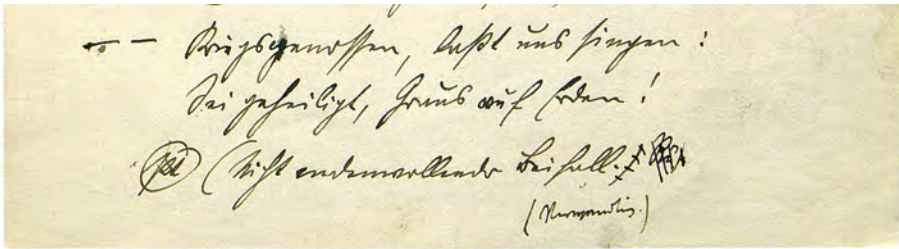 — — Kriegsgenossen, laßt uns singen:
Sei geheiligt, Graus auf Erden!
(Nicht endenwollender Beifall.)
(Verwandlg.)